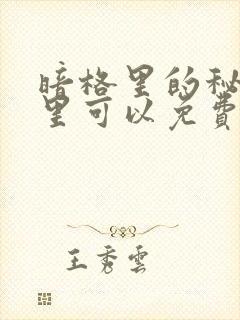 暗格里的秘
里可以免费
王秀雲